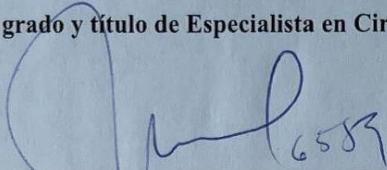 grado y título de Especialista en Cir
6589